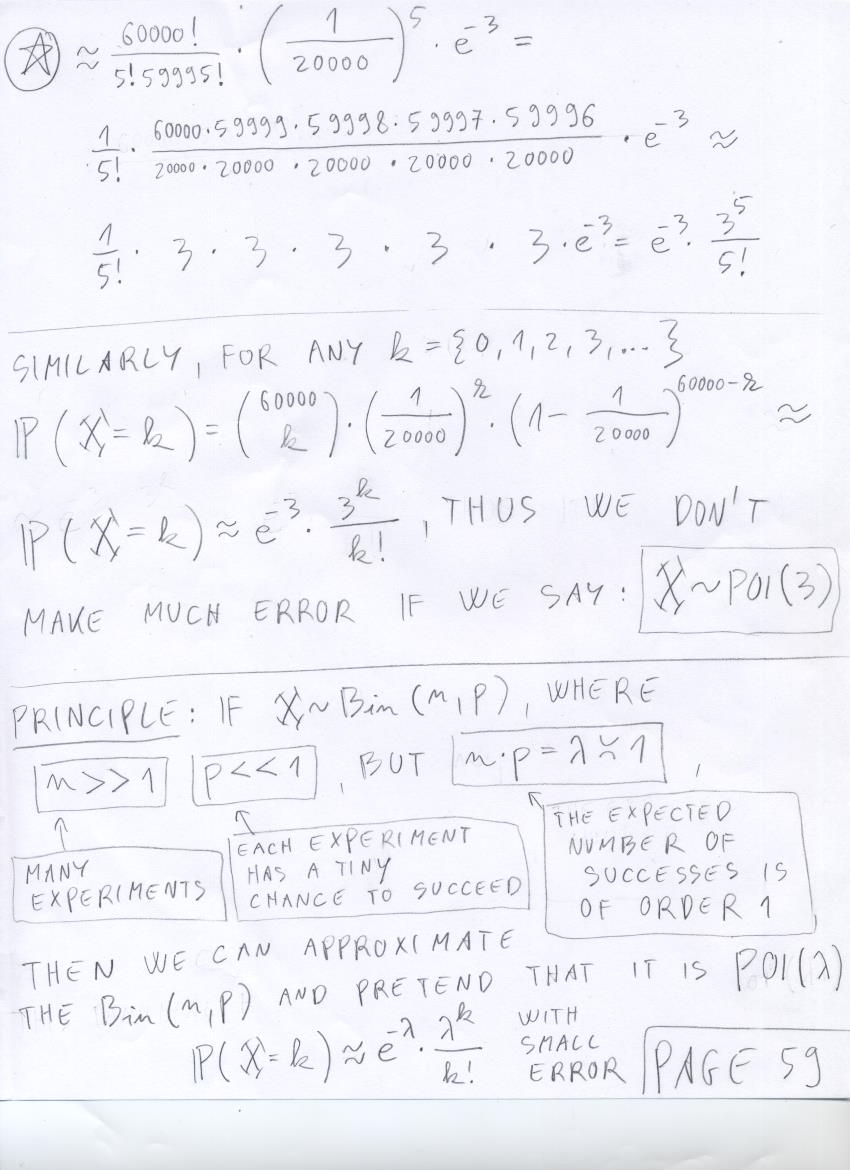 ☆ ≈ 60000! / 5! 59995! · (1 / 20000)^5 · e^-3 =
1/5! · 60000 · 59999 · 59998 · 59997 · 59996 / 20000 · 20000 · 20000 · 20000 · 20000 · e^-3 ≈
1/5! · 3 · 3 · 3 · 3 · 3 · e^-3 = e^-3 · 3^5/5!
SIMILARLY, FOR ANY k = {0, 1, 2, 3, ... }
P(X = k) = (60000 k) · (1 / 20000)^k · (1 - 1 / 20000)^60000-k ≈
P(X = k) ≈ e^-3 · 3^k / k! , THUS WE DON'T
MAKE MUCH ERROR IF WE SAY: X ~ POI(3)
PRINCIPLE: IF X ~ Bin(n, p), WHERE
n >> 1 p << 1 , BUT n · p = λ ≍ 1 ,
MANY
EXPERIMENTS
EACH EXPERIMENT
HAS A TINY
CHANCE TO SUCCEED
THE EXPECTED
NUMBER OF
SUCCESSES IS
OF ORDER 1
THEN WE CAN APPROXIMATE
THE Bin(n, p) AND PRETEND THAT IT IS POI(λ)
P(X = k) ≈ e^-λ · λ^k / k! WITH
SMALL
ERROR
PAGE 59